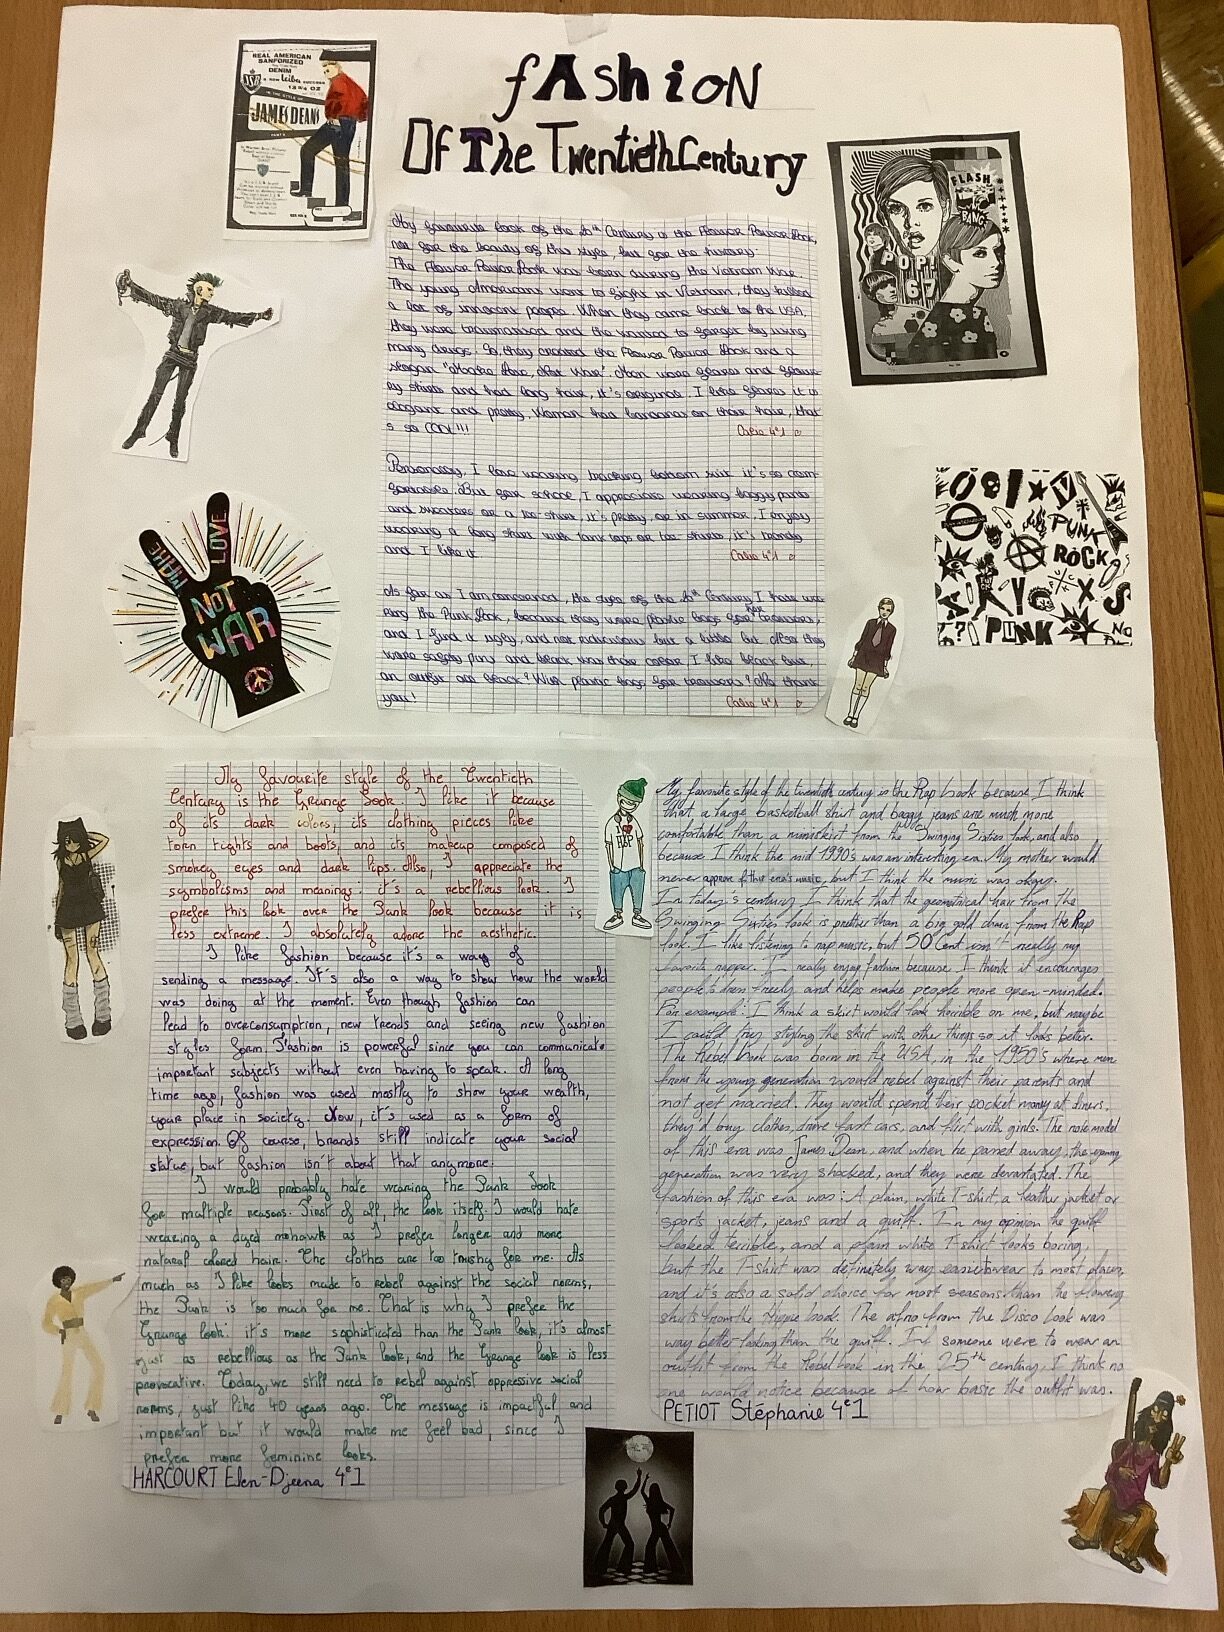 fAshioN
Of The Twentieth Century
REAL AMERICAN
SANFORIZED
DENIM
13 3/4 OZ
IN THE STYLE OF
JAMES DEAN
FLASH
BANG
POP!
67
MAKE
LOVE
NOT
WAR
PUNK
ROCK
PUNK
My favourite look of the 20th Century is the Flower Power Look,
not for the beauty of this style, but for the history.
The Flower Power Look was born during the Vietnam War.
The young Americans went to fight in Vietnam, they killed
a lot of innocent people. When they came back to the USA
they were traumatised and the wanted to forget by using
many drugs. So, they created the Flower Power Look and a
slogan "Make Love, Not War". Men wore flares and
shirts and had long hair, it's original. I like flares it is
elegant and pretty. Woman had bananas on their hair, that
s so COOL!!!
Célia 4°1
Personally, I love wearing bottom suit it's so com-
fortable. But for school, I appreciate wearing baggy pants
and sweaters or a tee-shirt, it's pretty, or in summer, I enjoy
wearing a long skirt with tank tops or tee shirts, it's trendy
and I like it.
Célia 4°1
As far as I am concerned, the style of the 20th Century I hate we-
ring the Punk Look, because they wore plastic bags for trousers,
and I find it ugly, and not ridiculous but a little but. Also they
wore safety pins and black was their color. I like black but,
an outfit all black? With plastic bags for trousers? No thank
you!
Célia 4°1
My favourite style of the Twentieth
Century is the Grunge Look. I like it because
of its dark colors, its clothing pieces like
torn tights and boots, and its makeup composed of
smokey eyes and dark lips. Also, I appreciate the
symbolisms and meanings: it's a rebellious look. I
prefer this look over the Punk look because it is
less extreme. I absolutely adore the aesthetic.
I like fashion because it's a way of
sending a message. It's also a way to show how the world
was doing at the moment. Even though fashion can
lead to overconsumption, new trends and seeing new fashion
styles form. Fashion is powerful since you can communicate
important subjects without even having to speak. A long
time ago, fashion was used mostly to show your wealth,
your place in society. Now, it's used as a form of
expression. Of course, brands still indicate your social
statue, but fashion isn't about that anymore.
I would probably hate wearing the Punk Look
for multiple reasons. First of all, the look itself. I would hate
wearing a dyed mohawk as I prefer longer and more
natural colored hair. The clothes are too trashy for me. As
much as I like looks made to rebel against the social norms,
the Punk is too much for me. That is why I prefer the
Grunge look: it's more sophisticated than the Punk look, it's almost
just as rebellious as the Punk look, and the Grunge look is less
provocative. Today, we still need to rebel against oppressive social
norms, just like 40 years ago. The message is impactful and
important but it would make me feel bad, since I
prefer more feminine looks.
HARCOURT Elen-Djeena 4°1
I
My favorite style of the twentieth century is the Rap look because I think
that a large basketball shirt and baggy jeans are much more
comfortable than a miniskirt from the Swinging Sixties look, and also
because I think the mid 1990's was an interesting era. My mother would
never approve of this era's music, but I think the music was okay.
In today's century I think that the geometrical hair from the
Swinging Sixties look is prettier than a big gold chain from the Rap
look. I like listening to rap music, but 50 Cent isn't really my
favorite rapper. I really enjoy fashion because I think it encourages
people to dress freely and helps make people more open-minded.
For example: I think a skirt would look horrible on me, but maybe
I could try styling the skirt with other things so it looks better.
The Rebel look was born in the USA, in the 1950's where men
from the young generation would rebel against their parents and
not get married. They would spend their pocket money at diners,
they'd buy clothes, drive fast cars, and flirt with girls. The role model
of this era was James Dean, and when he passed away, the young
generation was very shocked, and they were devastated. The
fashion of this era was: A plain, white T-shirt, a leather jacket or
sports jacket, jeans and a quiff. In my opinion the quiff
looked terrible, and a plain white T-shirt looks boring,
but the T-shirt was definitely way easier to wear to most places,
and it's also a solid choice for most seasons than the flowery
shirts from the Hippie look. The afro from the Disco Look was
way better looking than the quiff. If someone were to wear an
outfit from the Rebel look in the 25th century, I think no
one would notice because of how basic the outfit was.
PETIOT Stéphanie 4°1